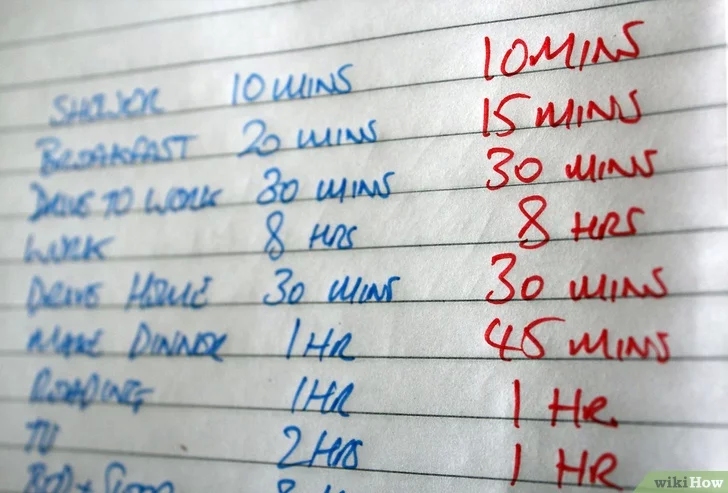 SHOWER 10 MINS 10 MINS
BREAKFAST 20 MINS 15 MINS
DRIVE TO WORK 30 MINS 30 MINS
WORK 8 HRS 8 HRS
DRIVE HOME 30 MINS 30 MINS
MAKE DINNER 1 HR 45 MINS
READING 1 HR 1 HR
TV 2 HRS 1 HR
BED +
wikiHow